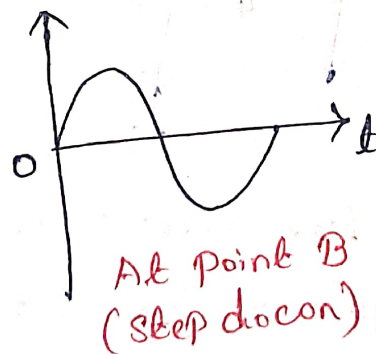 0
t
At point B
(step down)